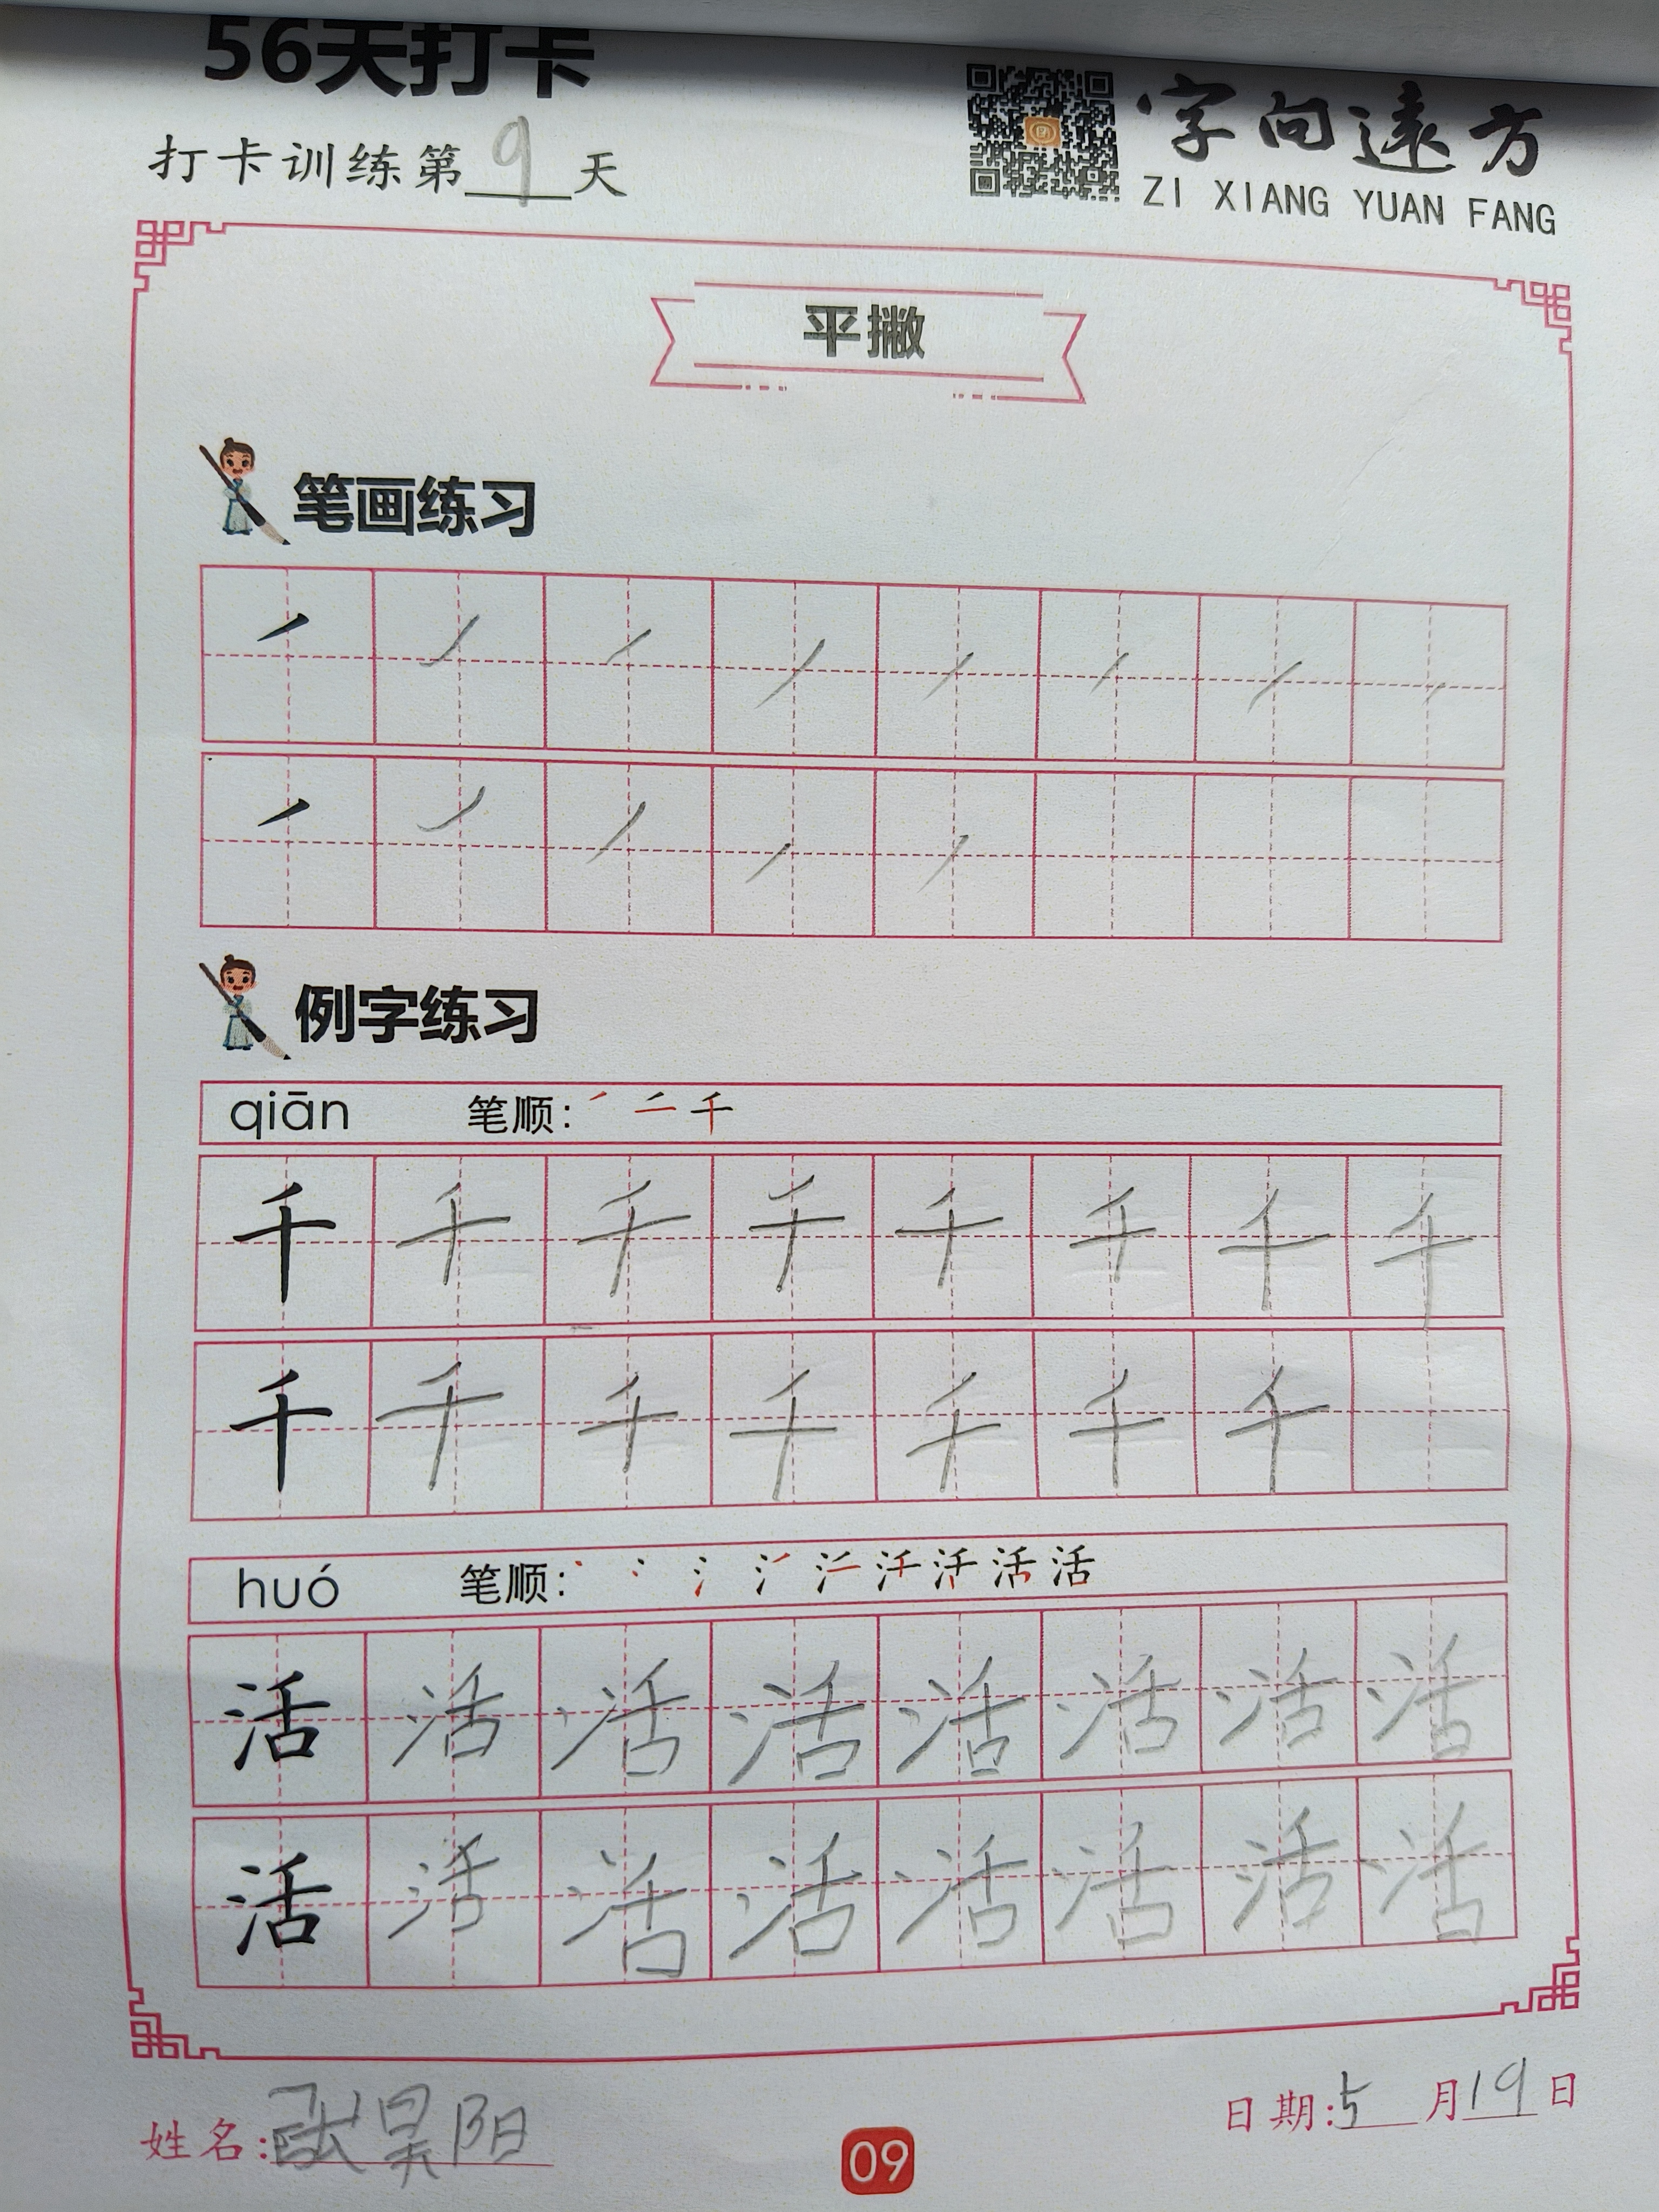 56天打卡
打卡训练第9天
字向遠方
ZI XIANG YUAN FANG
平撇
笔画练习
例字练习
qiān 笔顺:㇒ 二 千
千 千 千 千 千 千 千 千
千 千 千 千 千 千 千
huó 笔顺: 活
活 活 活 活 活 活 活 活
活 活 活 活 活 活 活 活
姓名:张昊阳
日期:5月19日
09